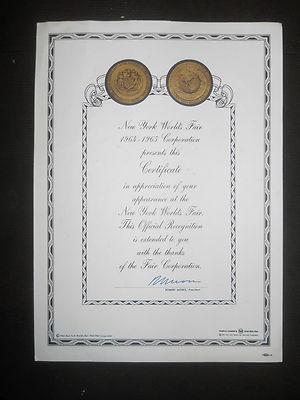 New York World's Fair
1964-1965 Corporation
presents this
Certificate
in appreciation of your
appearance at the
New York World's Fair.
This Official Recognition
is extended to you
with the thanks
of the Fair Corporation.
ROBERT MOSES, President